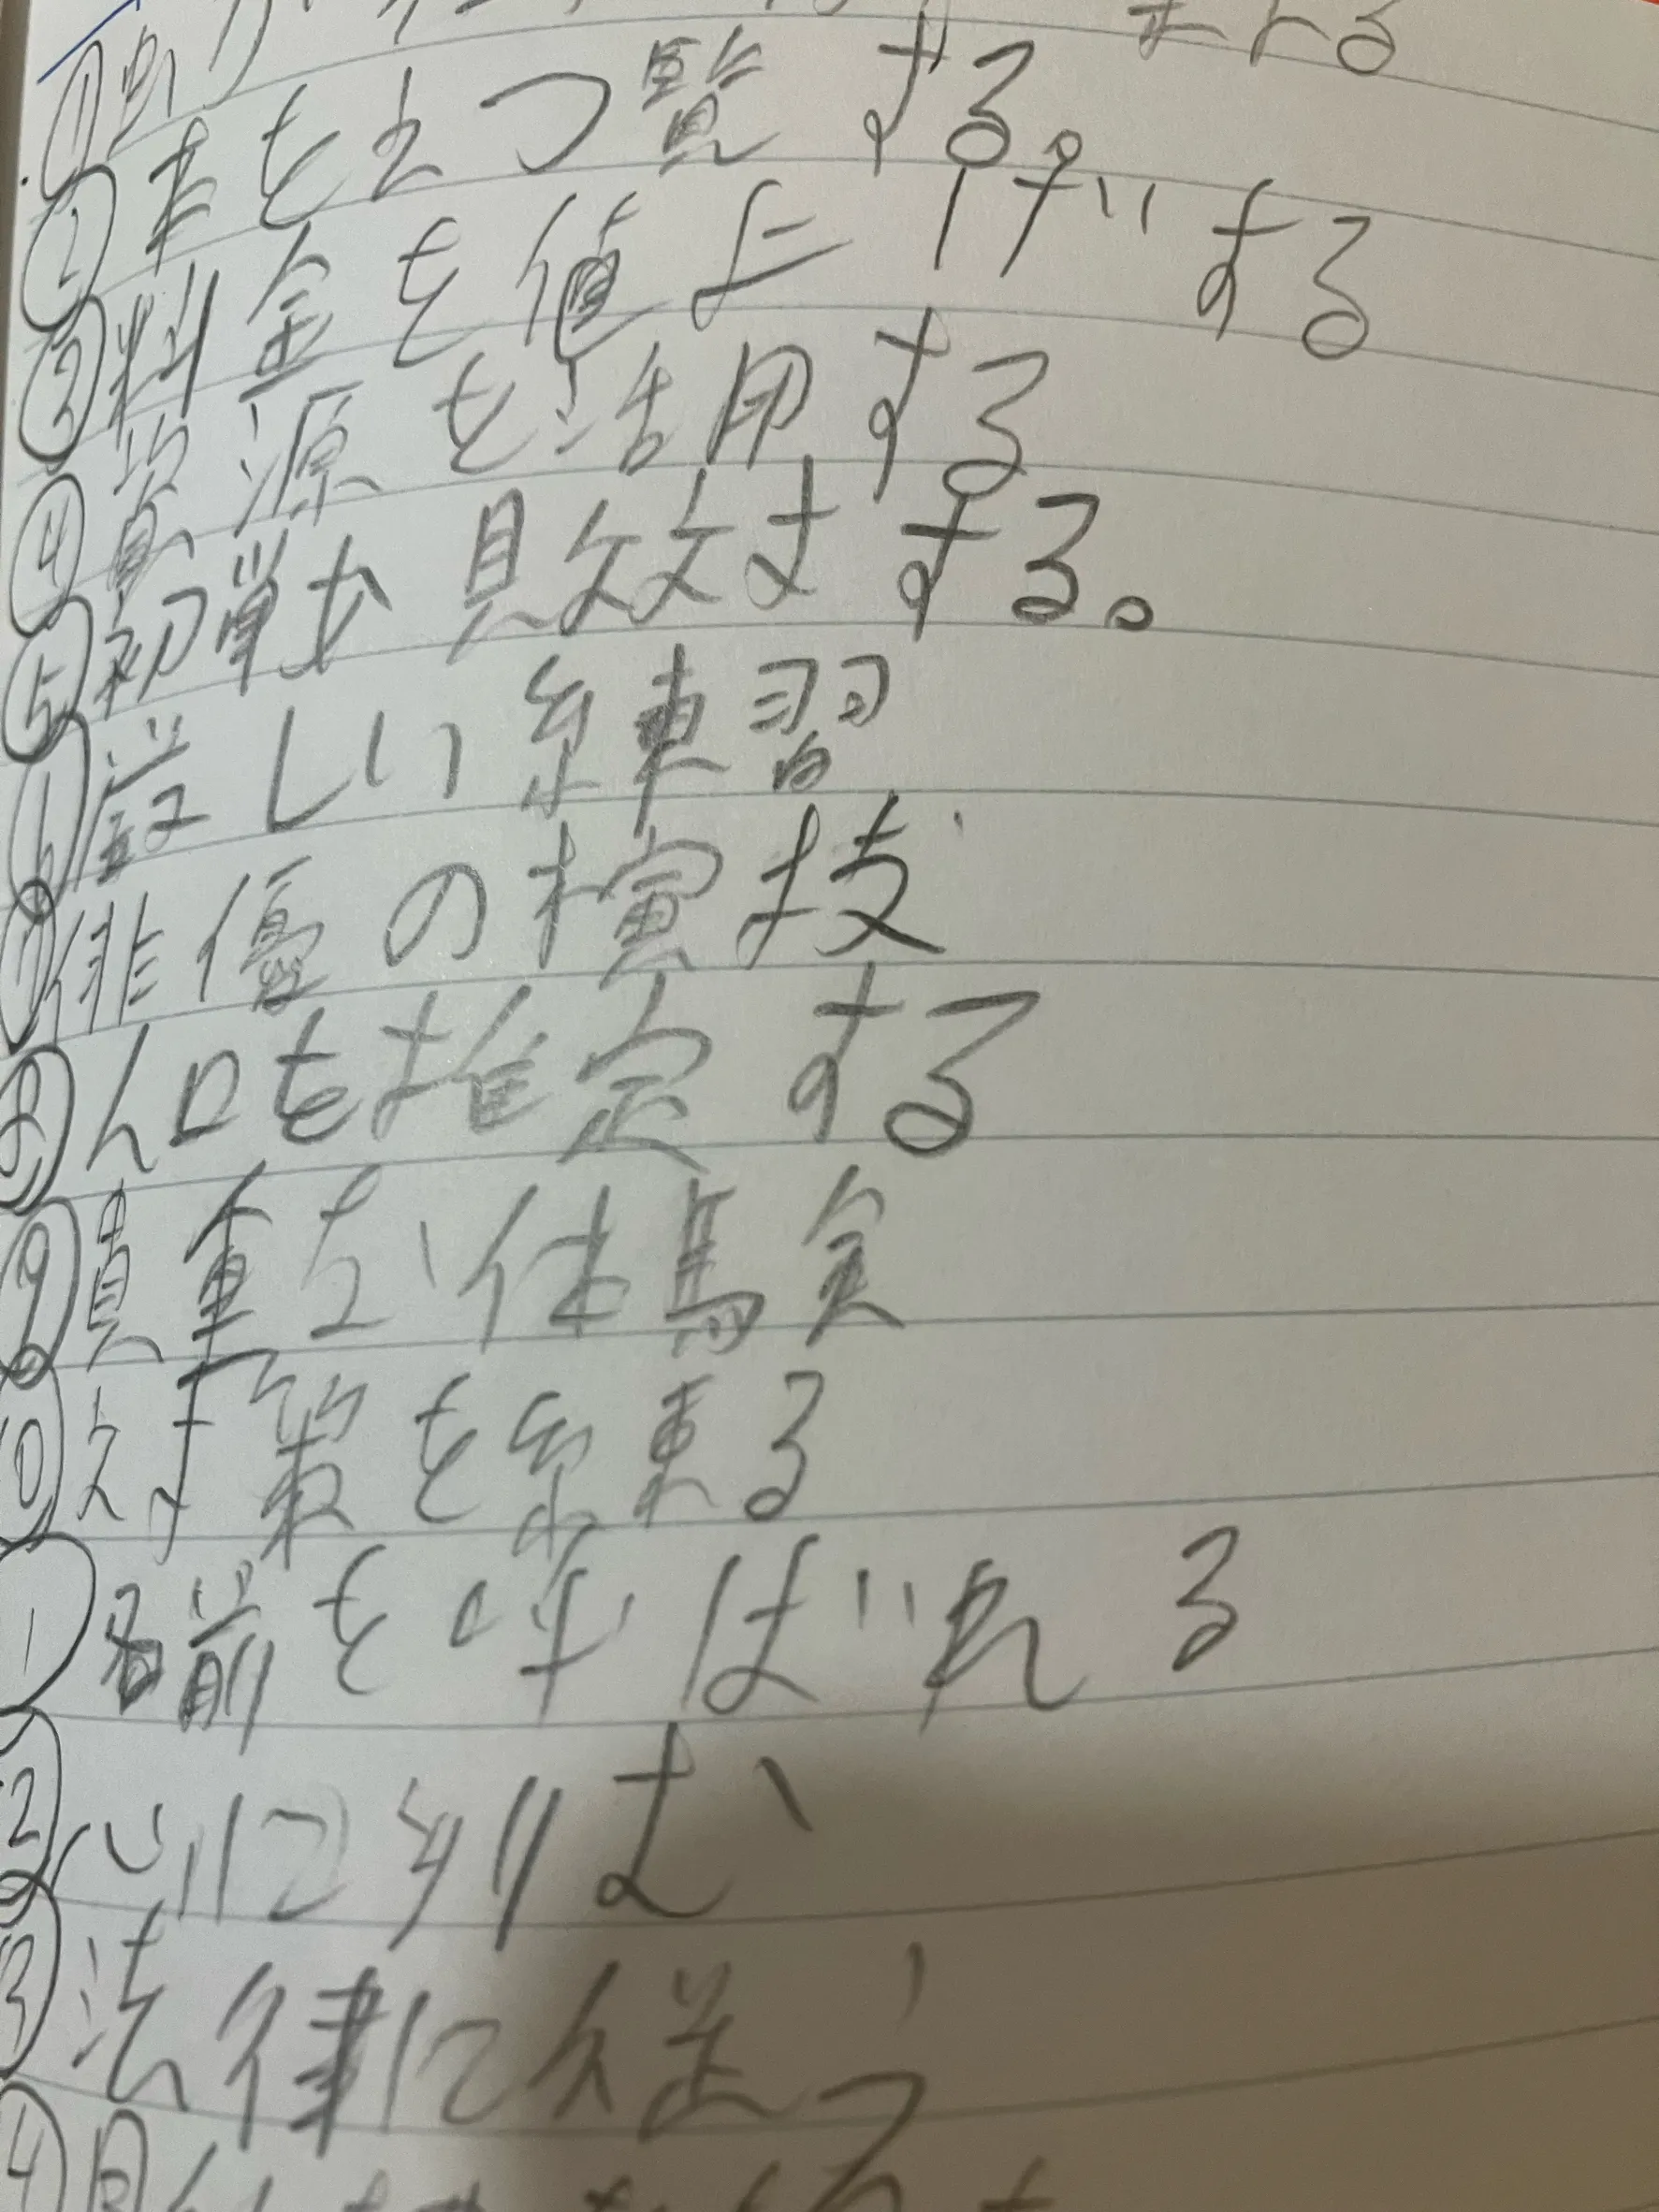 ② 本をえつ覧する。
③ 料金を値上げする
④ 資源を活用する
⑤ 初戦敗する。
⑥ 厳しい練習
⑦ 俳優の演技
⑧ 人口を推定する
⑨ 貴重な体験
⑩ 対策を練る
① 名前を呼ばれる
② 心に刻む
③ 法律に従う